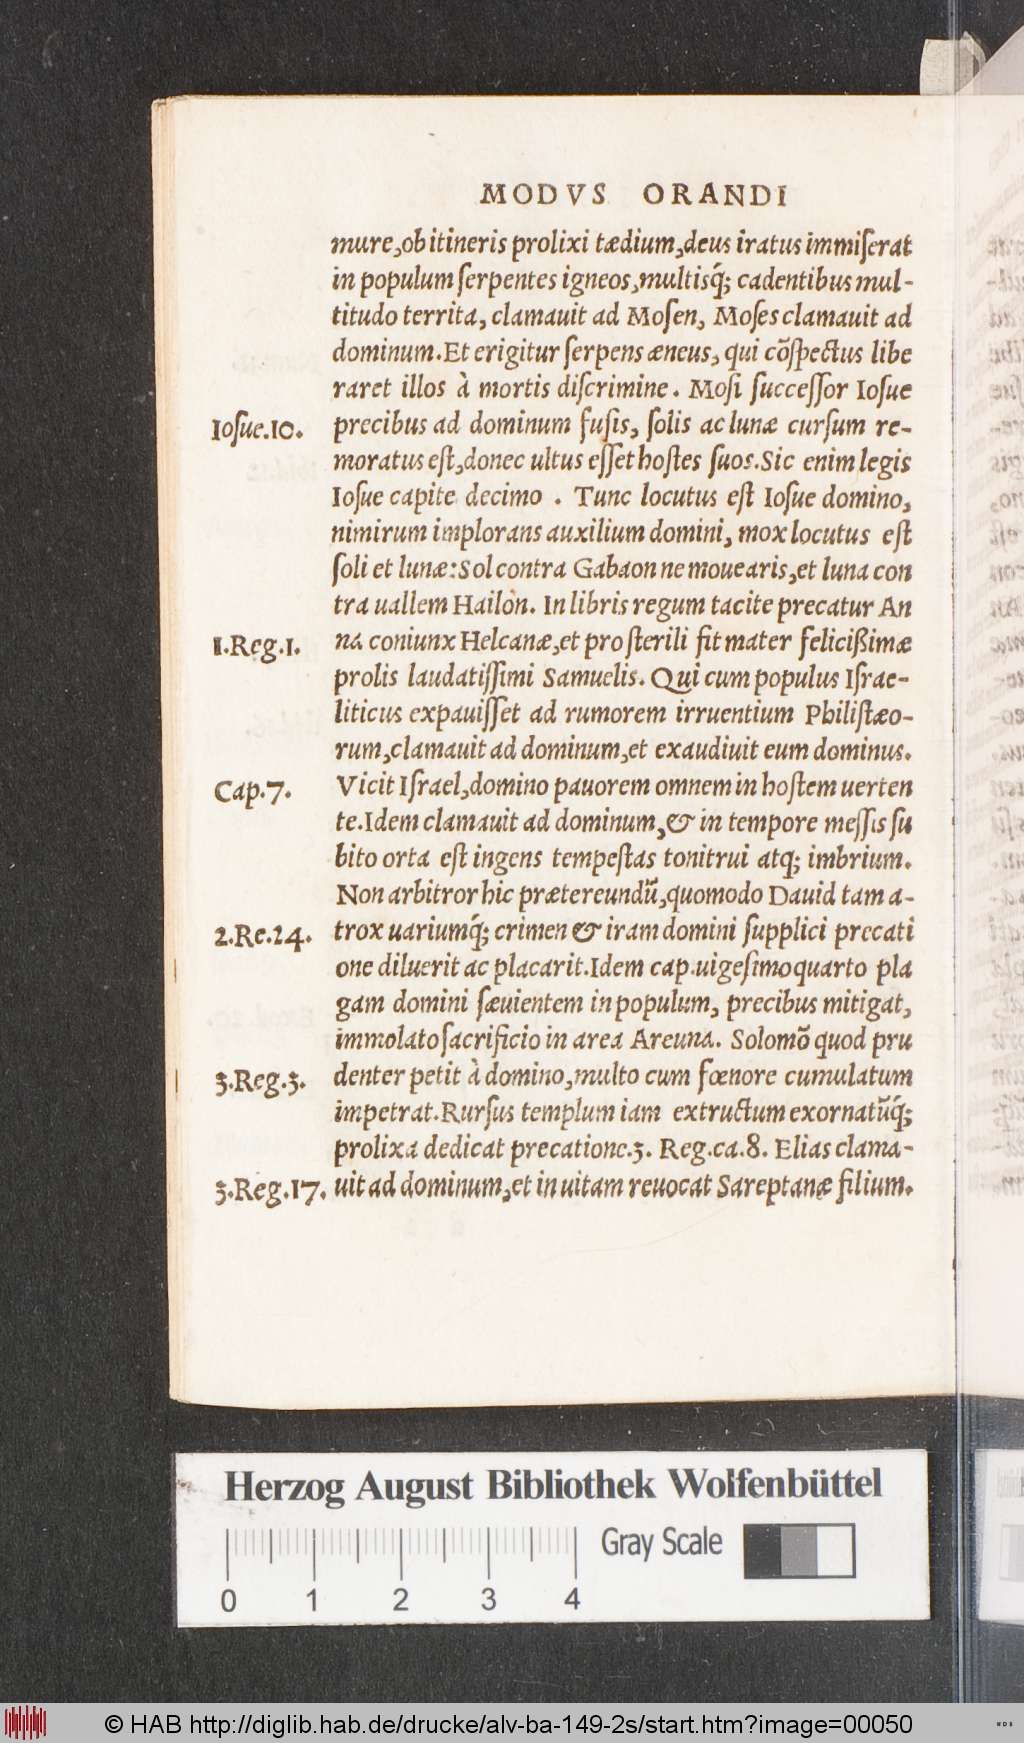 MODVS ORANDI
mure, ob itineris prolixi tædium, deus iratus immiſerat
in populum ſerpentes igneos, multisq́; cadentibus mul-
titudo territa, clamauit ad Moſen, Moſes clamauit ad
dominum. Et erigitur ſerpens æneus, qui cõſpectus libe
raret illos à mortis diſcrimine. Moſi ſucceſſor Ioſue
Ioſue.10. precibus ad dominum fuſis, ſolis ac lunæ curſum re-
moratus eſt, donec ultus eſſet hoſtes ſuos. Sic enim legis
Ioſue capite decimo . Tunc locutus eſt Ioſue domino,
nimirum implorans auxilium domini, mox locutus eſt
ſoli et lunæ: Sol contra Gabaon ne mouearis, et luna con
tra uallem Hailon. In libris regum tacite precatur An
1.Reg.1. na coniunx Helcanæ, et pro ſterili fit mater felicißimæ
prolis laudatiſſimi Samuelis. Qui cum populus Iſrae-
liticus expauiſſet ad rumorem irruentium Philiſtæo-
rum, clamauit ad dominum, et exaudiuit eum dominus.
Cap.7. Vicit Iſrael, domino pauorem omnem in hoſtem uerten
te. Idem clamauit ad dominum, & in tempore meſſis ſu
bito orta eſt ingens tempeſtas tonitrui atq; imbrium.
Non arbitror hic prætereundũ, quomodo Dauid tam a-
2.Re.24. trox uariumq́; crimen & iram domini ſupplici precati
one diluerit ac placarit. Idem cap. uigeſimo quarto pla
gam domini ſæuientem in populum, precibus mitigat,
immolato ſacrificio in area Areuna. Solomõ quod pru
3.Reg.3. denter petit à domino, multo cum fœnore cumulatum
impetrat. Rurſus templum iam extructum exornatũq́;
prolixa dedicat precatione. 3. Reg. ca. 8. Elias clama-
3.Reg.17. uit ad dominum, et in uitam reuocat Sareptanæ filium.
Herzog August Bibliothek Wolfenbüttel
Gray Scale
0 1 2 3 4
© HAB http://diglib.hab.de/drucke/alv-ba-149-2s/start.htm?image=00050